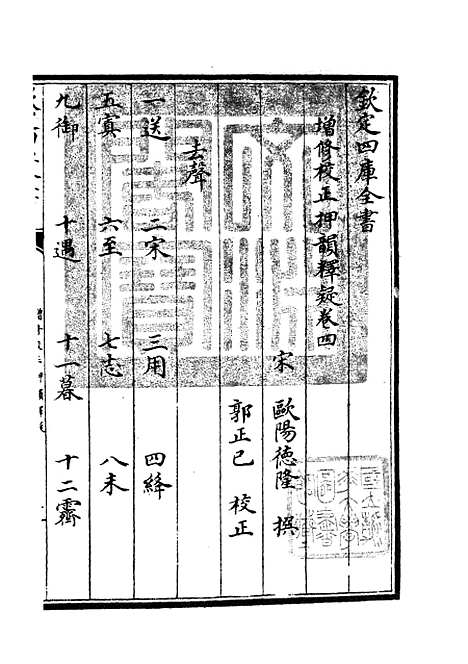 欽定四庫全書
增修校正押韻釋疑卷四
宋 歐陽德隆 撰
郭正己 校正
去聲
一送 二宋 三用 四絳
五寘 六至 七志 八未
九御 十遇 十一暮 十二霽